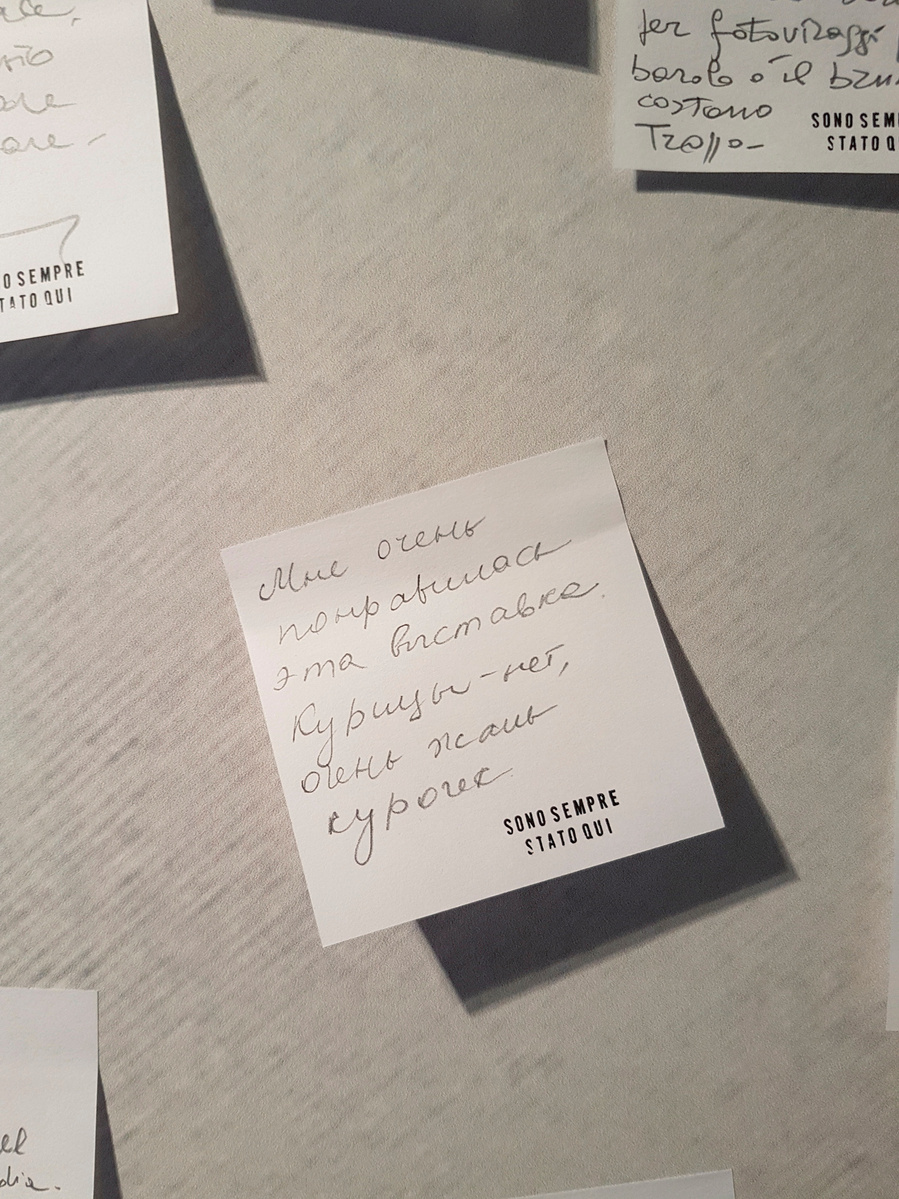 ore
are -
O SEMPRE
TATO QUI
per fotoviraggi
barolo o il
costano
Troppo-
SONO SEM
STATO Q
Мне очень
понравилась
эта выставка.
Курицы - нет,
очень жаль
курочек.
SONO SEMPRE
STATO QUI
el
dia.